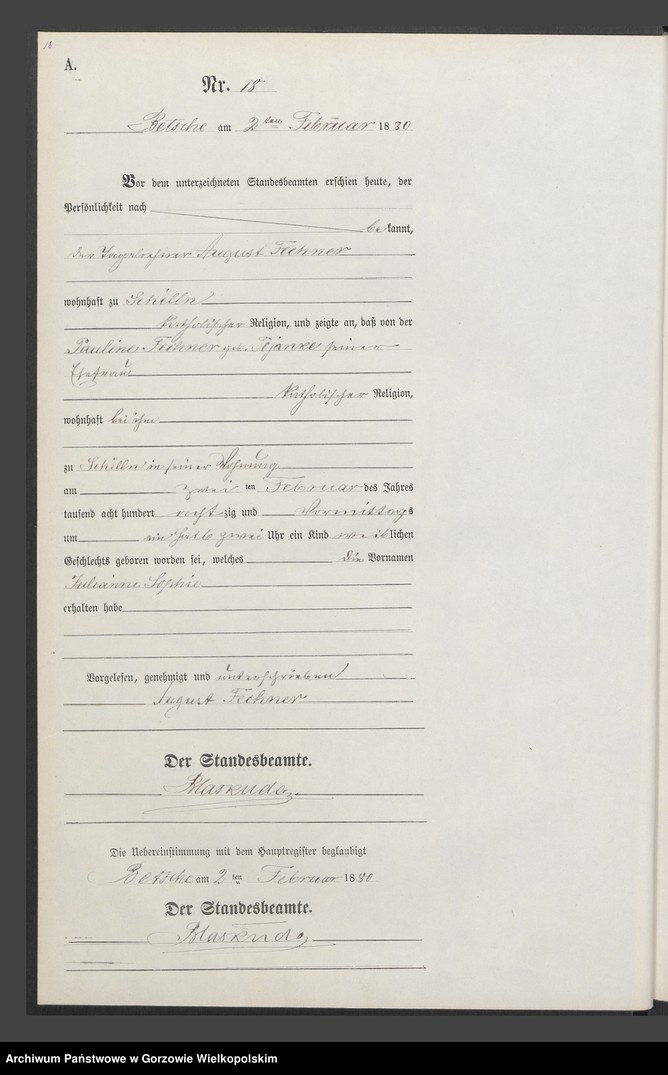 18
A.
Nr. 18
Betsche am 2 ten Februar 1880
Vor dem unterzeichneten Standesbeamten erschien heute, der
Persönlichkeit nach
bekannt,
der Tagelöhner August Fechner
wohnhaft zu Schilln
katholischer Religion, und zeigte an, daß von der
Pauline Fechner geb. seiner
Ehefrau
katholischer Religion,
wohnhaft bei ihm
zu Schilln in seiner Wohnung
am zwei ten Februar des Jahres
tausend acht hundert achtzig und Vormittags
um ein halb zwei Uhr ein Kind weiblichen
Geschlechts geboren worden sei, welches die Vornamen
Julianne Sophie
erhalten habe
Vorgelesen, genehmigt und unterschrieben
August Fechner
Der Standesbeamte.
Blaskuda
Die Uebereinstimmung mit dem Hauptregister beglaubigt
Betsche am 2 ten Februar 1880
Der Standesbeamte.
Blaskuda
Archiwum Państwowe w Gorzowie Wielkopolskim